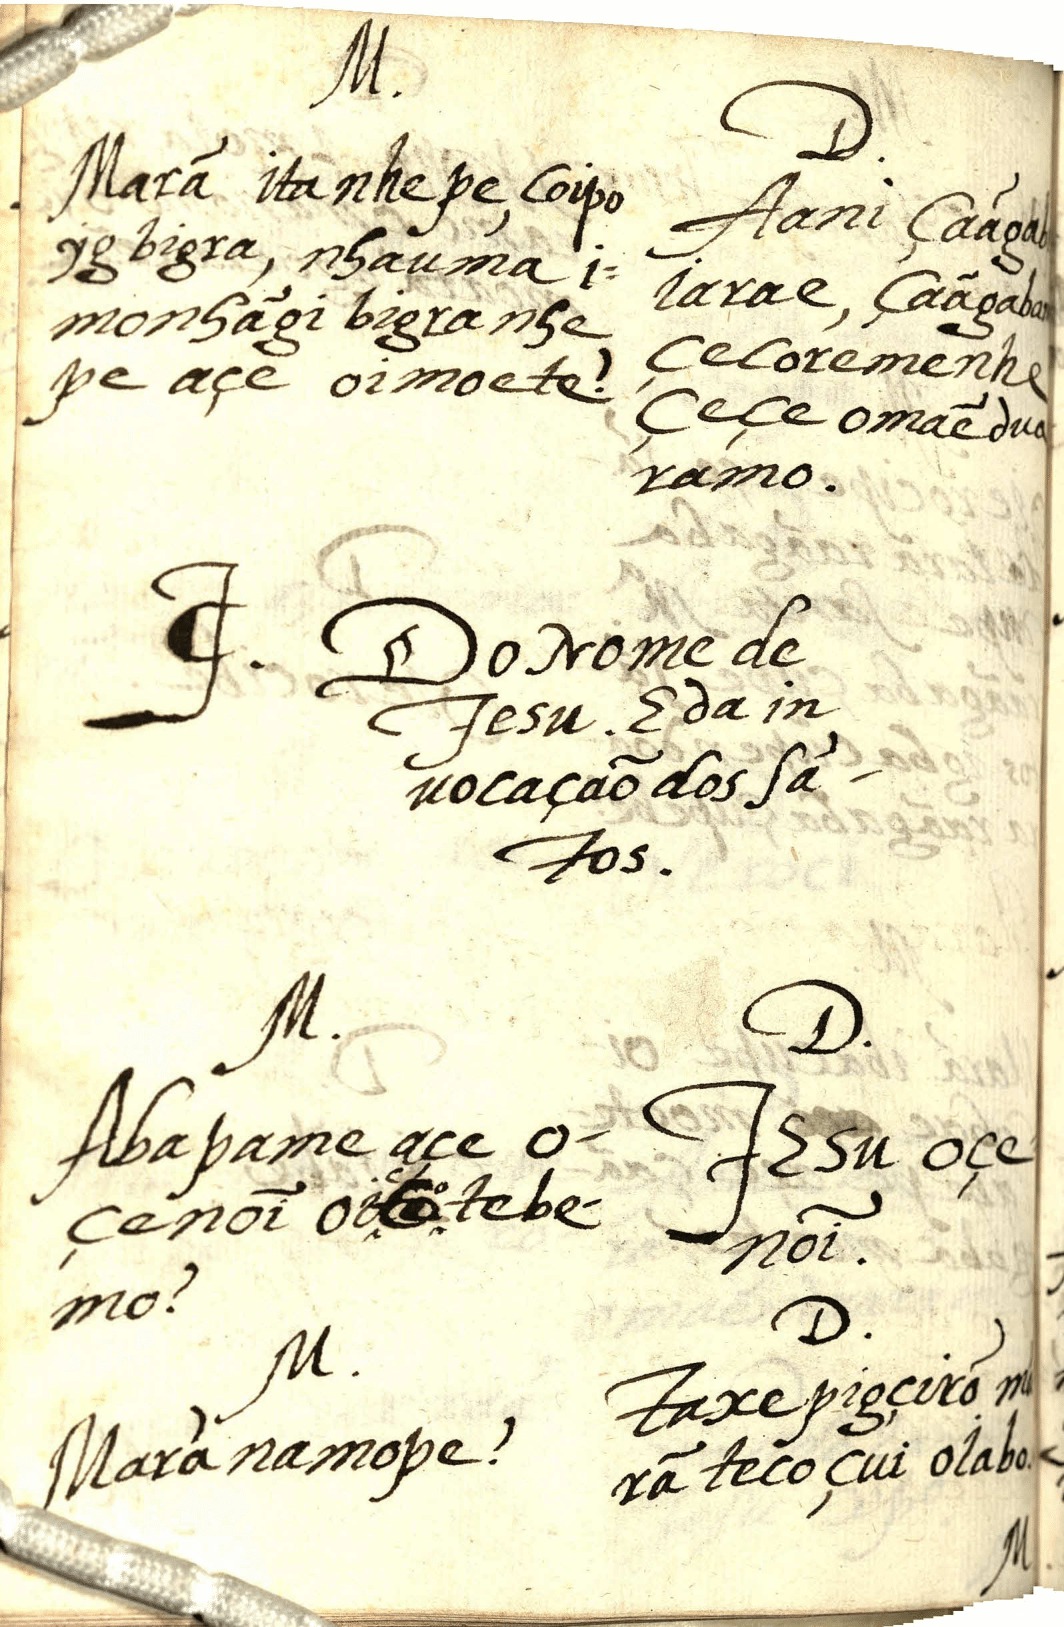 M.
Marã ita nhe pe, Coipo
yg bigra, nhauma i=
monhãgi bigra nhe
pe açe oimoete?
D.
Aani Çaãgab
iarae, Çaãgaba
Çecoremenhe
Çeçe omaẽdua
ramo.
J. Do Nome de
Jesu. E da in
uocação dos Sã-
tos.
M.
Abapame açe o-
çenoĩ tebe-
mo?
D.
JESU oçe
noĩ.
M.
Marã namope?
D.
Taxe pigçirõ ma
rã teco çui oiabo.
M